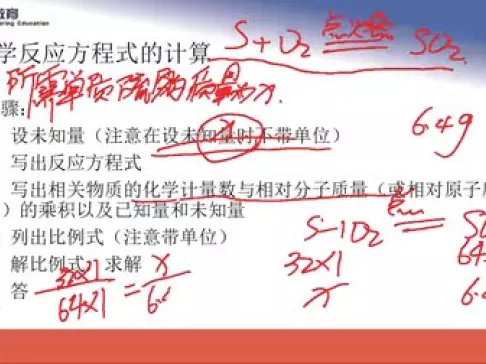 教育
ering Education
学反应方程式的计算
S+O₂ 点燃 SO₂
所需单质硫的质量为x.
骤:
设未知量(注意在设未知量时不带单位)
x
6.4g
写出反应方程式
写出相关物质的化学计量数与相对分子质量(或相对原子质
)的乘积以及已知量和未知量
S+O₂
列出比例式(注意带单位)
32×1
64
解比例式,求解
x
6.
答
32×1/64×1 = x/6.